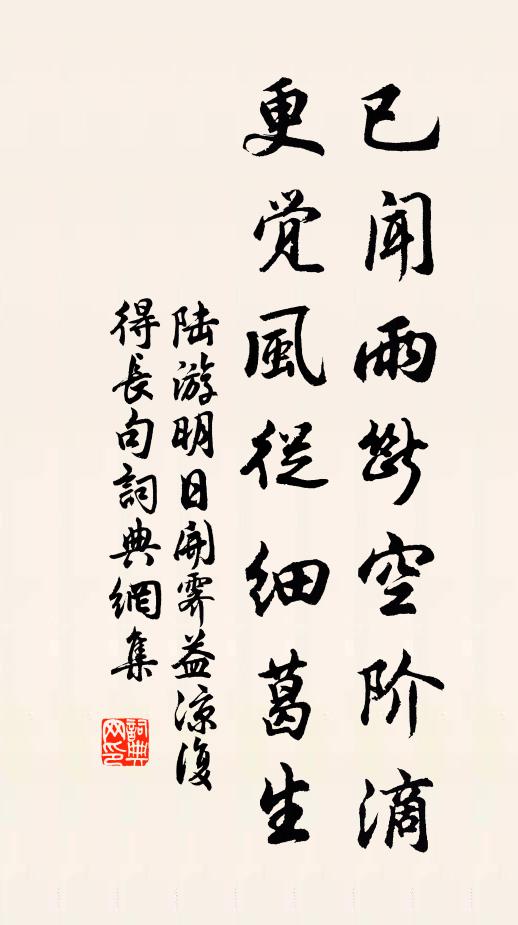 已闻雨断空阶滴
更觉風從细葛生
陆游明日開霁益凉復
得長句詞典網集
詞典网印